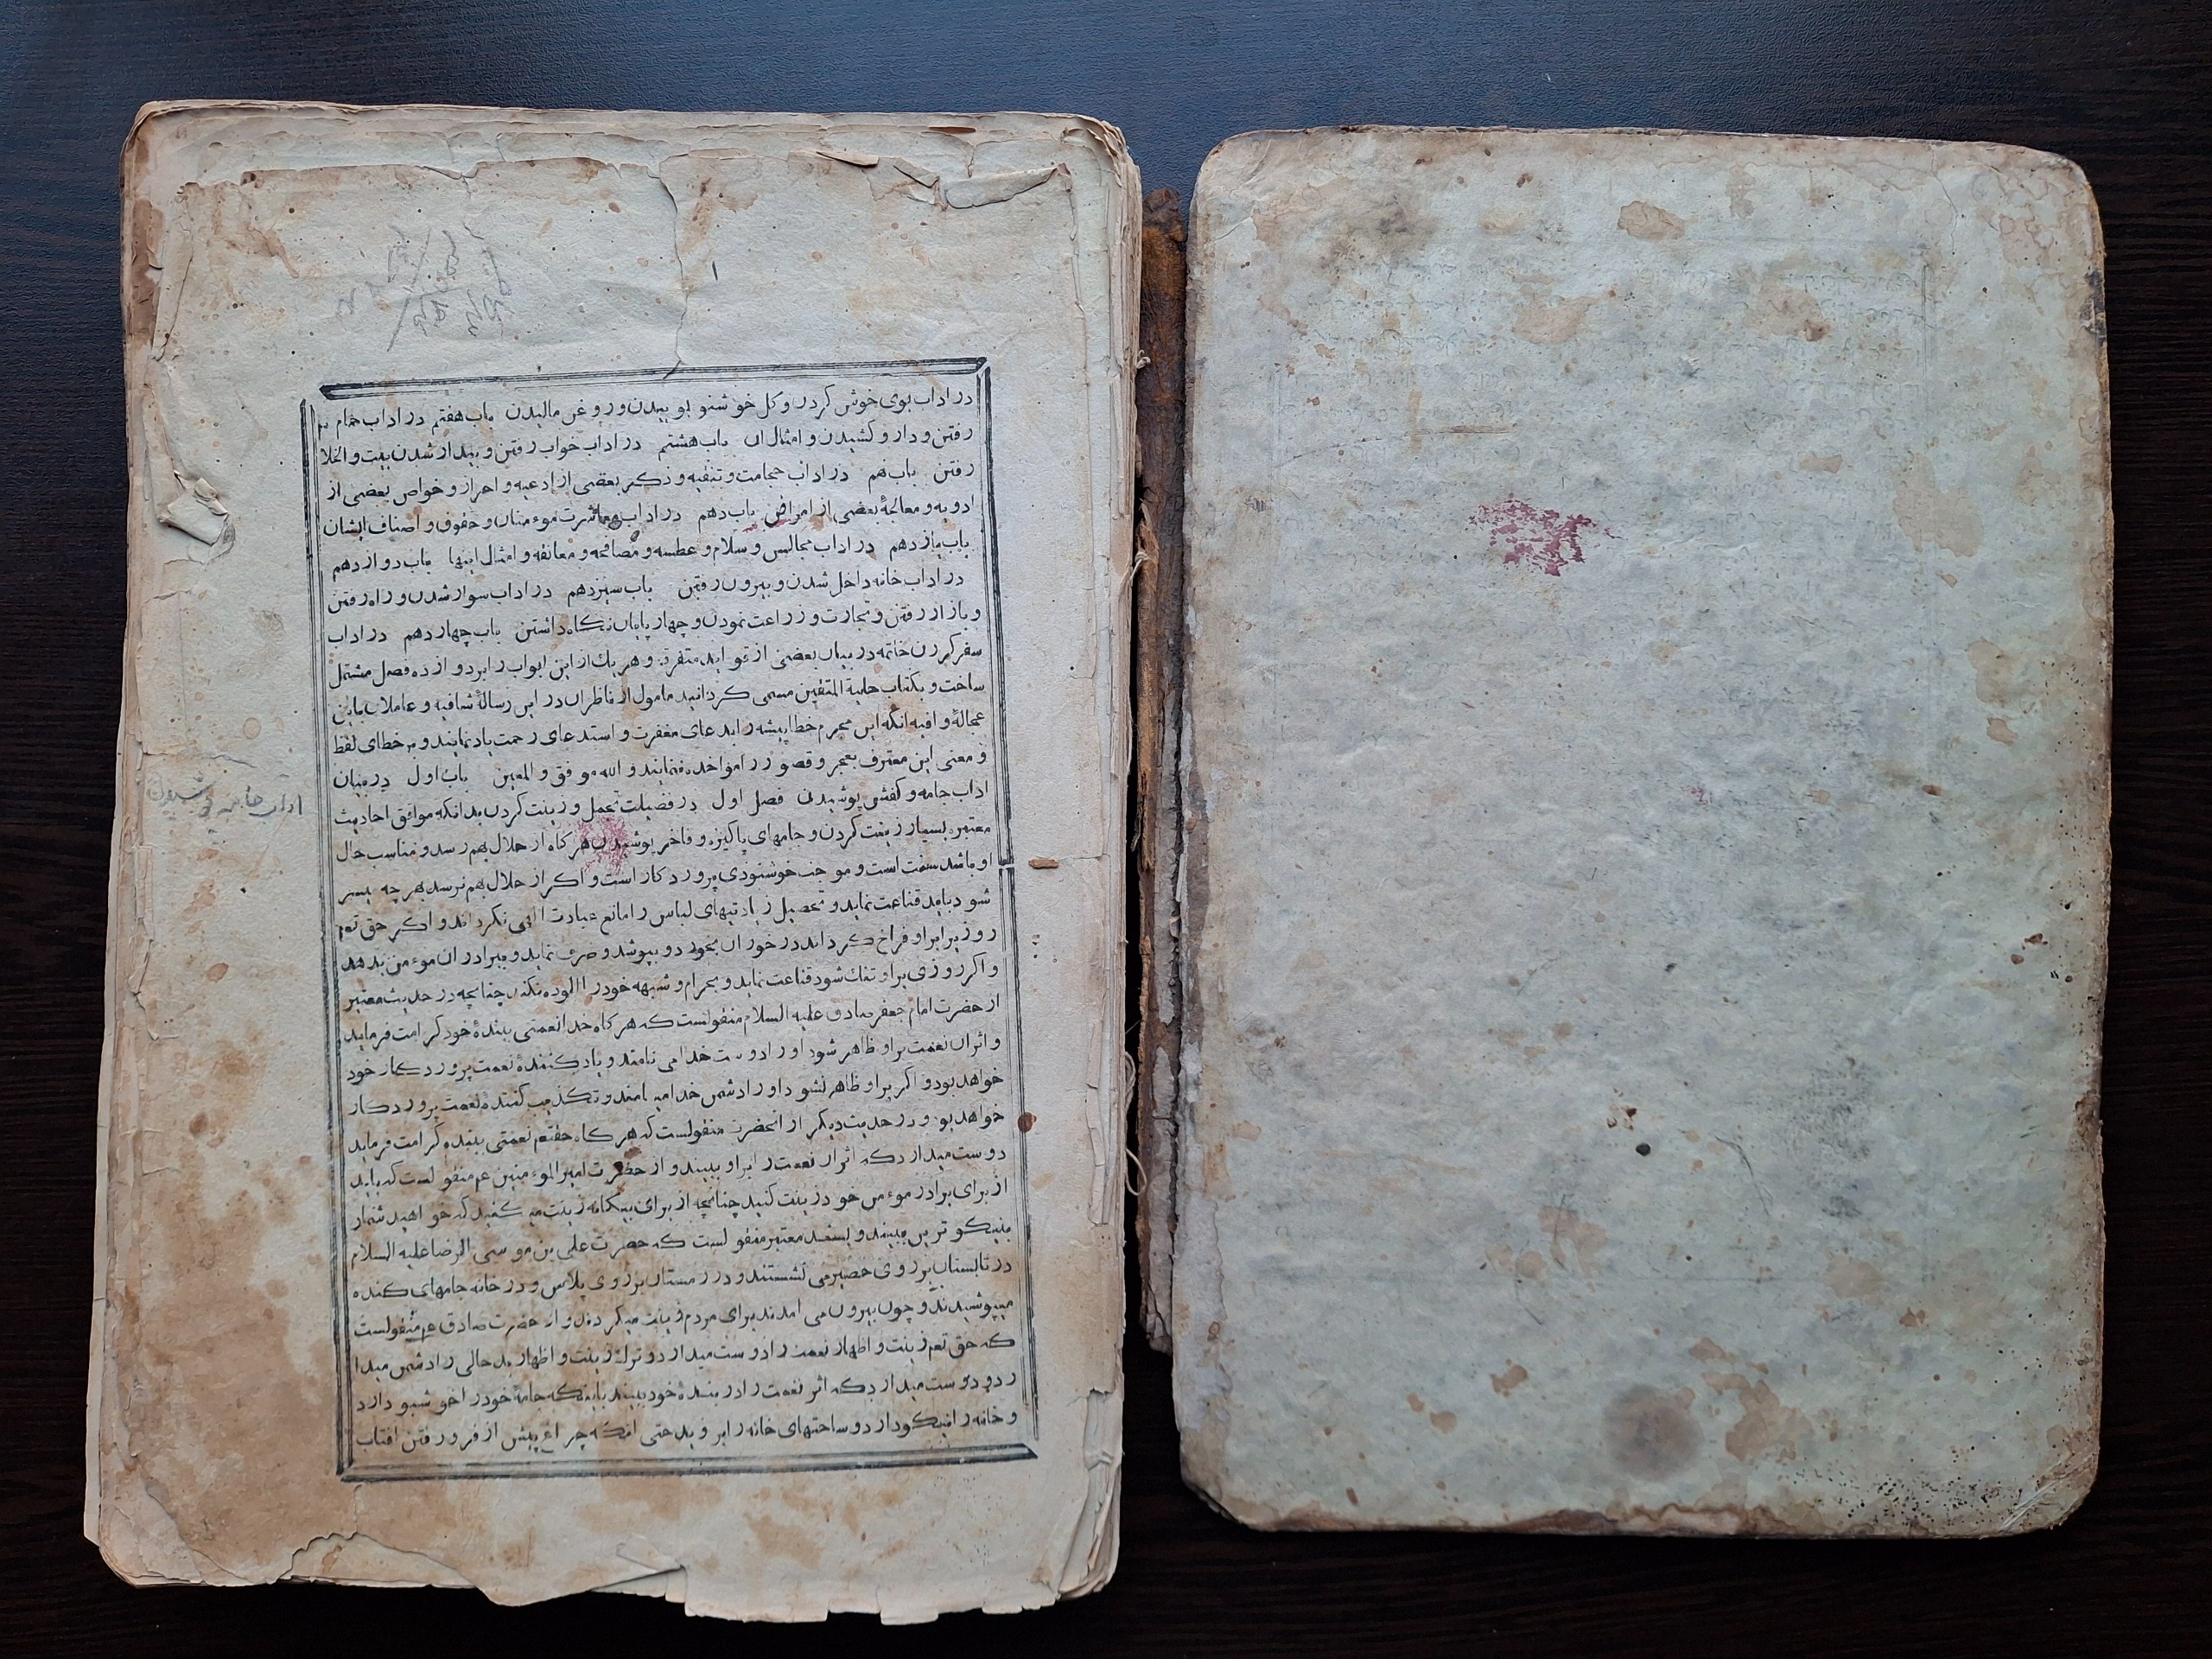 ۱
در اداب بوی خوش کردن و کل خوشبو بوییدن و روغن مالیدن باب هفتم در اداب حمام
رفتن و دارو کشیدن و امثال ان باب هشتم در اداب خواب رفتن و بیدار شدن بیت و الخلا
رفتن باب نهم در اداب حجامت و تنقیه و ذکر بعضی از ادعیه و احراز و خواص بعضی از
ادویه و معالجهٔ بعضی از امراض باب دهم در اداب معاشرت موءمنان و حقوق و اصناف ایشان
باب یازدهم در اداب مجالس و سلام و عطسه و مصافحه و معانقه و امثال اینها باب دوازدهم
در اداب خانه داخل شدن و بیرون رفتن باب سیزدهم در اداب سوار شدن و راه رفتن
و بازار رفتن و تجارت و زراعت نمودن و چهار پایان نکاه داشتن باب چهاردهم در اداب
سفر کردن خاتمه در بیان بعضی از فواید متفرقه و هر یك از این ابواب را بر دوازده فصل مشتمل
ساخت و بکتاب حلیة المتقین مسمی کردانید مامول از ناظران در این رسالهٔ شافیه و عاملان باین
عجالهٔ وافیه انکه این مجرم خطا پیشه را بدعای مغفرت و استدعای رحمت یاد نمایند و بر خطای لفظ
و معنی این معترف بعجز و قصور را مواخذه ننمایند و الله موفق و المعین باب اول در بیان
اداب جامه و کفش پوشیدن فصل اول در فضیلت تجمل و زینت کردن بدانکه موافق احادیث
معتبره بسیار زینت کردن و جامهای پاکیزه و فاخر پوشیدن هر کاه از حلال بهم رسد و مناسب حال
او باشد سنت است و موجب خوشنودی پرورد کار است و اکر از حلال بهم نرسد بهر چه میسر
شود باید قناعت نماید و تحصیل زیادتیهای لباس را مانع عبادت الهی نکرداند و اکر حق تعم
روزی برا و فراخ کرداند در خور ان بخورد و بپوشد و صرف نماید و ببرادران موءمن بدهد
و اکر روزی بر او تنك شود قناعت نماید و بحرام و شبهه خود را الوده نکند چنانچه در حدیث معتبر
از حضرت امام جعفر صادق علیه السلام منقولست که هر کاه خدا نعمتی ببندهٔ خود کرامت فرماید
و اثر ان نعمت بر او ظاهر شود او را دوست خدا می نامند و یاد کنندهٔ نعمت پرورد کار خود
خواهد بود و اکر بر او ظاهر نشود او را دشمن خدا می نامند و تکذیب کنندهٔ نعمت پرورد کار
خواهد بود و در حدیث دیکر از انحضرت منقولست که هر کاه حقتعم نعمتی ببنده کرامت فرماید
دوست میدارد که اثر ان نعمت را بر او ببیند و از حضرت امیر الموءمنین عم منقولست که باید
از برای برادر موءمن خود زینت کنید چنانچه از برای بیکانه زینت می کنید که خواهید شمار
بنیکو ترین ببیند و بسند معتبر منقولست که حضرت علی بن موسی الرضا علیه السلام
در تابستان بر روی حصیر می نشستند و در زمستان بر روی پلاس و در خانه جامهای کنده
میپوشیدند و چون بیرون می امدند برای مردم زینت میکردند و از حضرت صادق عم منقولست
که حق تعم زینت و اظهار نعمت را دوست میدارد و ترك زینت و اظهار بد حالی را دشمن میدا
رد و دوست میدارد که اثر نعمت را در بندهٔ خود ببیند باینکه جامهٔ خود را خوشبو دارد
و خانه را نیکو دارد و ساحتهای خانه را بروبد حتی انکه چراغ پیش از فرو رفتن افتاب
اداب جامه پوشیدن